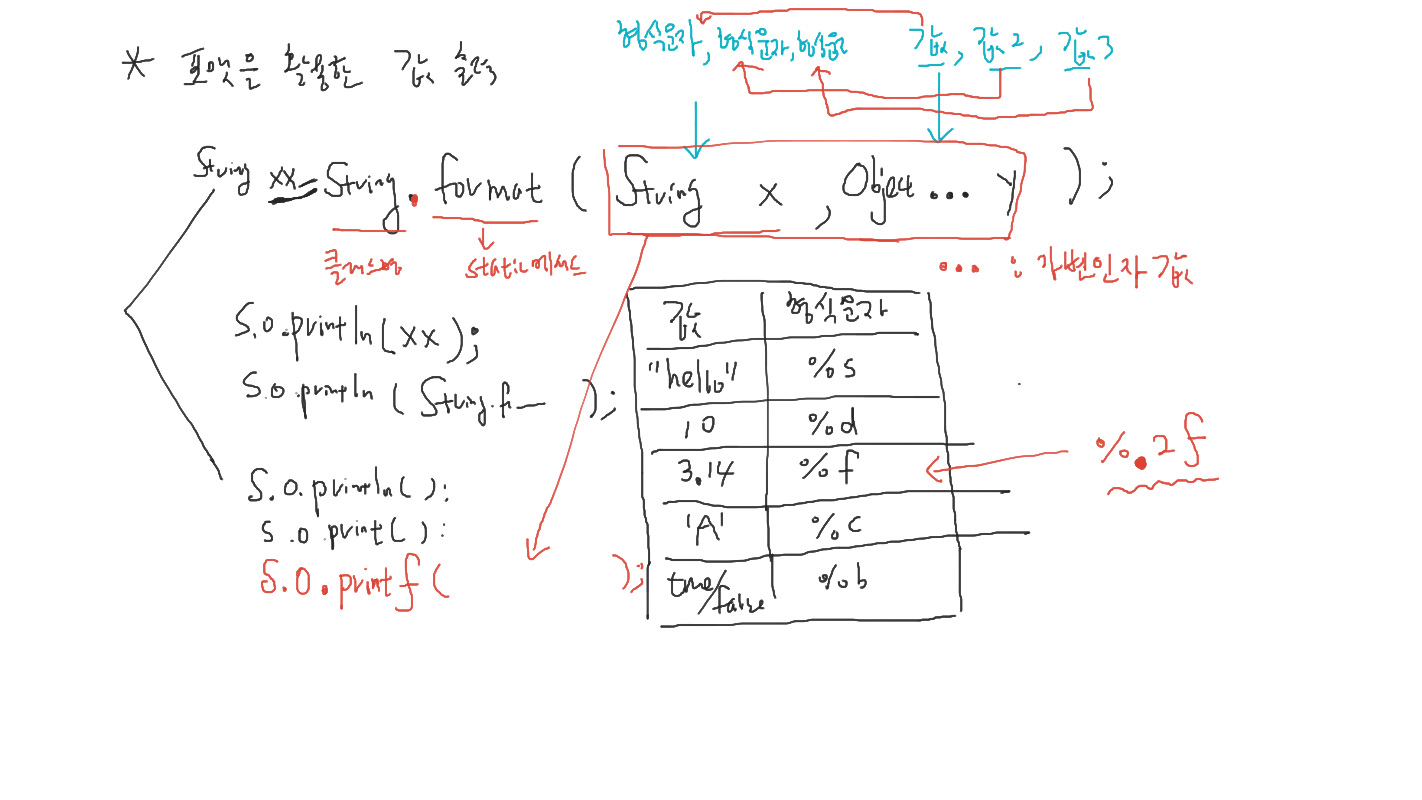 형식문자, 형식문자, 형식문자 값, 값2, 값3
* 포맷을 활용한 값 출력
String xx = String.format ( String x , Object ... y );
클래스명 static메서드
... : 가변인자 값
S.O.println(xx);
S.O.println ( String.f );
S.O.println( ):
S.O.print( ):
S.O.printf( );
값 형식문자
"hello" %s
10 %d
3.14 %f
%.2f
'A' %c
true/false %b